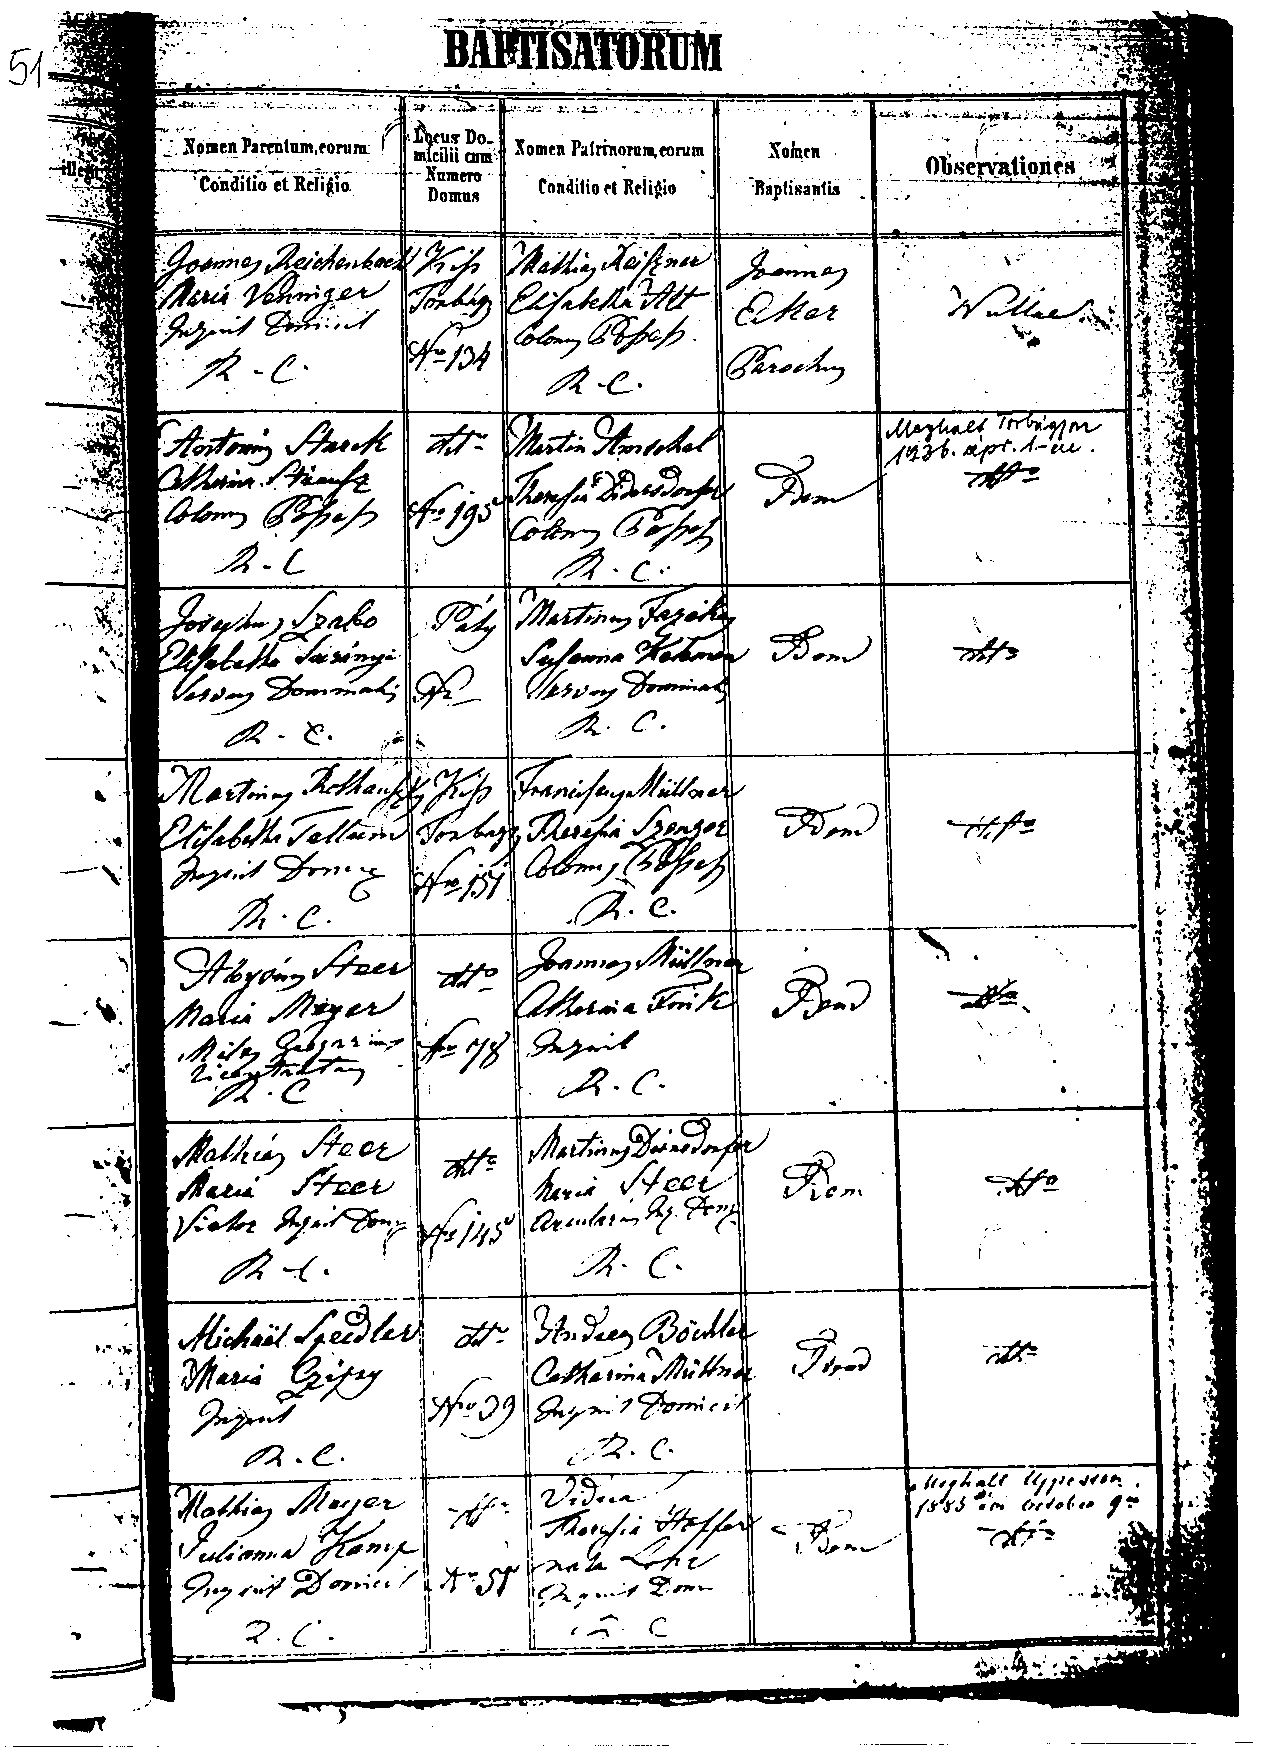 51
BAPTISATORUM
Nomen Parentum, eorum
Conditio et Religio
Locus Do-
micilii cum
Numero
Domus
Nomen Patrinorum, eorum
Conditio et Religio
Nomen
Baptisantis
Observationes
Joannes Reichenbach
Maria Venniger
Inquil Domicil
R. C.
Kiss
Torbágy
Nro 134
Mathias
Elisabetha Alt
Colonus Possess.
R. C.
Joannes
Eker
Parochus
Nullae.
Antonius Starck
Catharina
Colonus Possess
R. C
dtto
Nro 195
Martin
Theresia Didersdorfer
Colonus Possess
R. C.
Idem
Meghalt Torbágyon
1936. apr. 1-én.
dtto
Josephus Szabo
Elisabetha
Servus Dominalis
R. C.
Páty
Nro
Martinus Fazekas
Susanna
Servus Dominalis
R. C.
Idem
dtto
Martinus
Elisabetha
Inquil Domic
R. C.
Kiss
Torbágy
Nro 151
Franciscus Müllner
Theresia Szenger
Colonus Possess
R. C.
Idem
dtto
Aloysius Steer
Maria Mayer
Miles
R. C
dtto
Nro 78
Joannes Müllner
Catharina Fink
Inquil
R. C.
Idem
dtto
Mathias Steer
Maria Steer
Vietor Inquil Domic
R. C.
dtto
Nro 145
Martinus
Maria Steer
Arcularius Inq. Domic
R. C.
Idem
dtto
Michaël Speedler
Maria
Inquil
R. C.
dtto
Nro 39
Andreas
Catharina Müllner
Inquil Domicil
R. C.
Idem
dtto
Mathias Mayer
Julianna Kamp
Inquil Domicil
R. C.
dtto
Nro
Vidua
Theresia
nata Lohr
Inquil Dom
R. C
Idem
Meghalt
1885 október
dtto